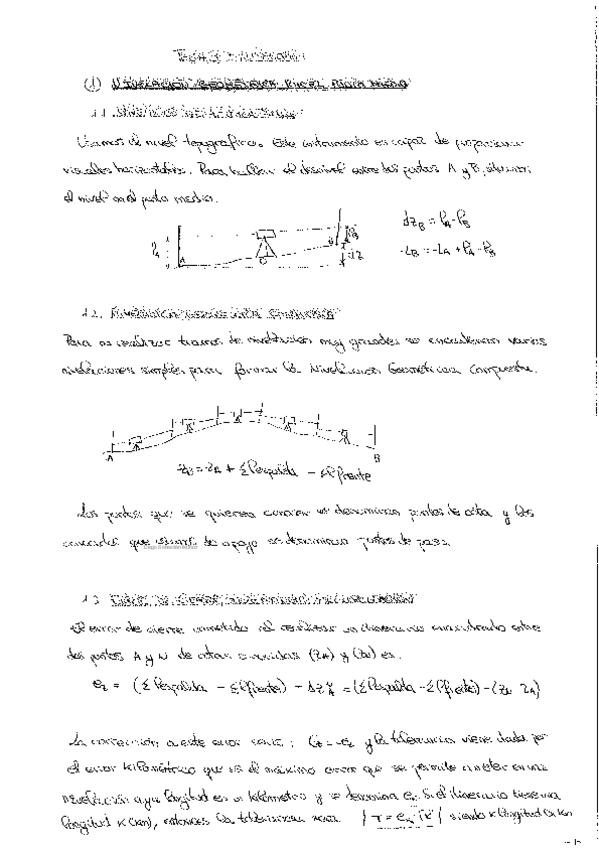 Tema 3: Nivelación
(1) Nivelación geométrica por el punto medio
1.1. Nivelación
Usamos el nivel topográfico. Este instrumento es capaz de proporcionar
visuales horizontales. Para hallar el desnivel entre dos puntos A y B, situamos
el nivel en el punto medio.
dZ_B = l_A - l_B
Z_B = Z_A + l_A - l_B
l_A l_B
A B dZ
1.2. Nivelación geométrica compuesta
Para realizar tramos de nivelación muy grandes se encadenan varias
nivelaciones simples para formar la Nivelación Geométrica Compuesta.
A B
Z_B = Z_A + Σl espalda - Σl frente
Los puntos que se quieren conocer se denominan puntos de cota y los
que de apoyo se denominan puntos de paso.
1.3 Error de cierre,
El error de cierre cometido al realizar un itinerario encuadrado entre
dos puntos A y N de cotas conocidas (Z_A) y (Z_N) es.
e_z = (Σl espalda - Σl frente) - dZ = (Σl espalda - Σl frente) - (Z_N - Z_A)
La corrección a este error será: = -e_z y la tolerancia viene dada por
el error kilométrico que es el máximo error que se permite cometer en una
nivelación cuya longitud es un kilómetro y se denomina e_k. Si el itinerario tiene una
longitud K (km), entonces la tolerancia será T = e_k √K siendo K longitud en km